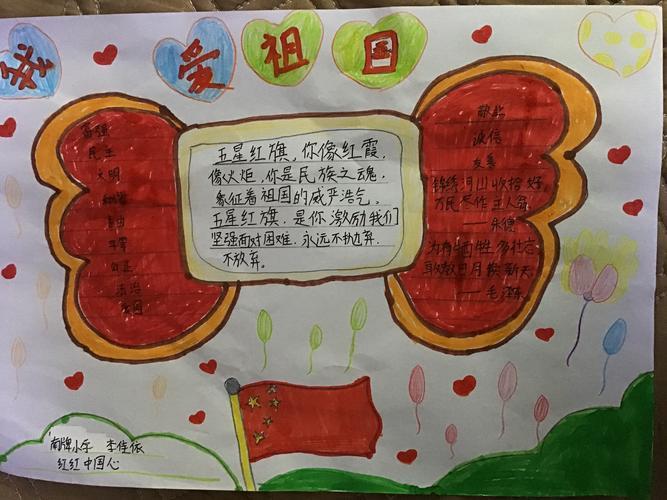 我爱祖国
富强
民主
文明
和谐
自由
平等
公正
法治
爱国
五星红旗,你像红霞,
像火炬,你是民族之魂,
象征着祖国的威严浩气。
五星红旗,是你激励我们
坚强面对困难,永远不抛弃、
不放弃。
敬业
诚信
友善
锦绣河山收拾好,
万民尽作主人翁。
——朱德
为有牺牲多壮志,
敢教日月换新天。
——毛泽东
南牌小学 李佳依
红红中国心